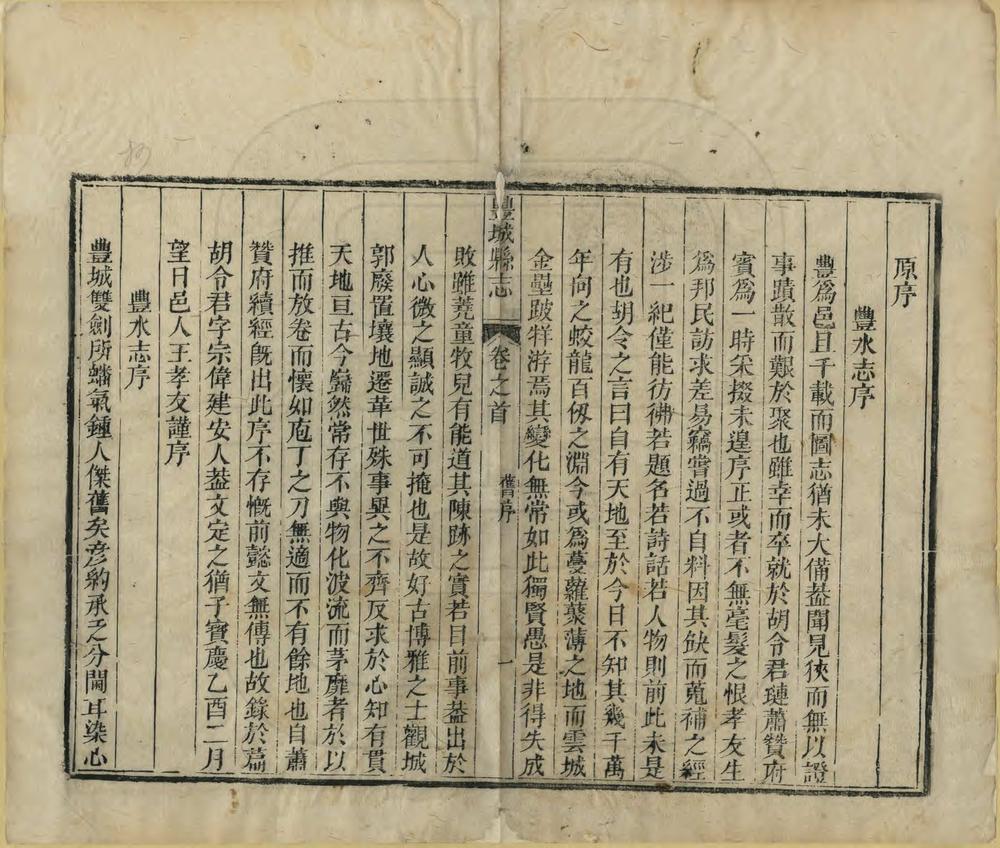 原序
豐水志序
豐爲邑且千載而圖志猶未大備葢聞見狹而無以證
事蹟散而艱於聚也雖幸而卒就於胡令君璉蕭贊府
賓爲一時采掇未遑序正或者不無毫髮之恨孝友生
爲邦民訪求差易竊嘗過不自料因其缺而蒐補之經
涉一紀僅能彷彿若題名若詩話若人物則前此未是
有也胡令之言曰自有天地至於今日不知其幾千萬
年向之蛟龍百仭之淵今或爲蔓蘿藂薄之地而雲城
金壘跛牂游焉其變化無常如此獨賢愚是非得失成
豐城縣志
卷之首
舊序
一
敗雖蕘童牧兒有能道其陳跡之實若目前事葢出於
人心微之顯誠之不可掩也是故好古博雅之士觀城
郭廢置壤地遷革世殊事異之不齊反求於心知有貫
天地亘古今巋然常存不與物化波流而茅靡者於以
推而放卷而懷如庖丁之刀無適而不有餘地也自蕭
贊府續經旣出此序不存慨前懿文無傳也故錄於篇
胡令君字宗偉建安人葢文定之猶子寳慶乙酉二月
望日邑人王孝友謹序
豐水志序
豐城雙劍所蟠氣鍾人傑舊矣彦約承乏分閫耳染心